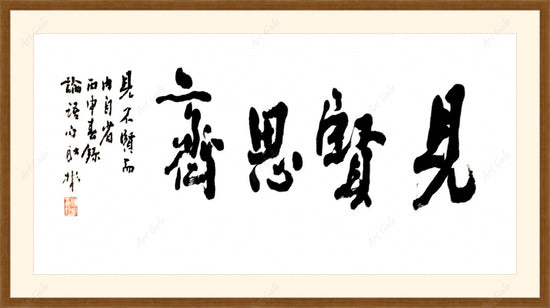 見賢思齊
見不賢而
内自省
丙申春錄
論語句